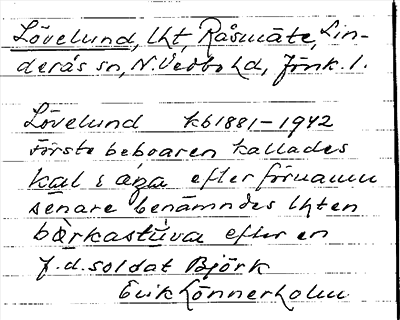 Lövelund, lht, Råsmåte, Lin-
derås sn, N. Vedbo hd, Jönk. l.
Lövelund kb 1881–1942
Förste beboaren kallades
efter förnamn
senare benämndes lhten
efter en
f.d. soldat Björk
Erik Lönnerholm